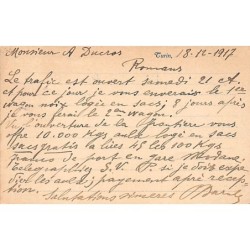 Monsieur A Ducros Turin, 18-12-1917
Romans
Le trafic est ouvert samedi 21 A.
et pour ce jour je vous enverais le 1er
wagon noix logée en sacs, 8 jours après
je vous ferai le 2me wagon.
ouverture de la frontière vous
offre 10.000 Kgs logée en sacs
sacs gratis a Lires 45 les 100 Kgs
franco de port en gare Modane.
Telegraphiez S.V.P. si je dois expe-
dier les payement après récep-
tion. Salutations sincères